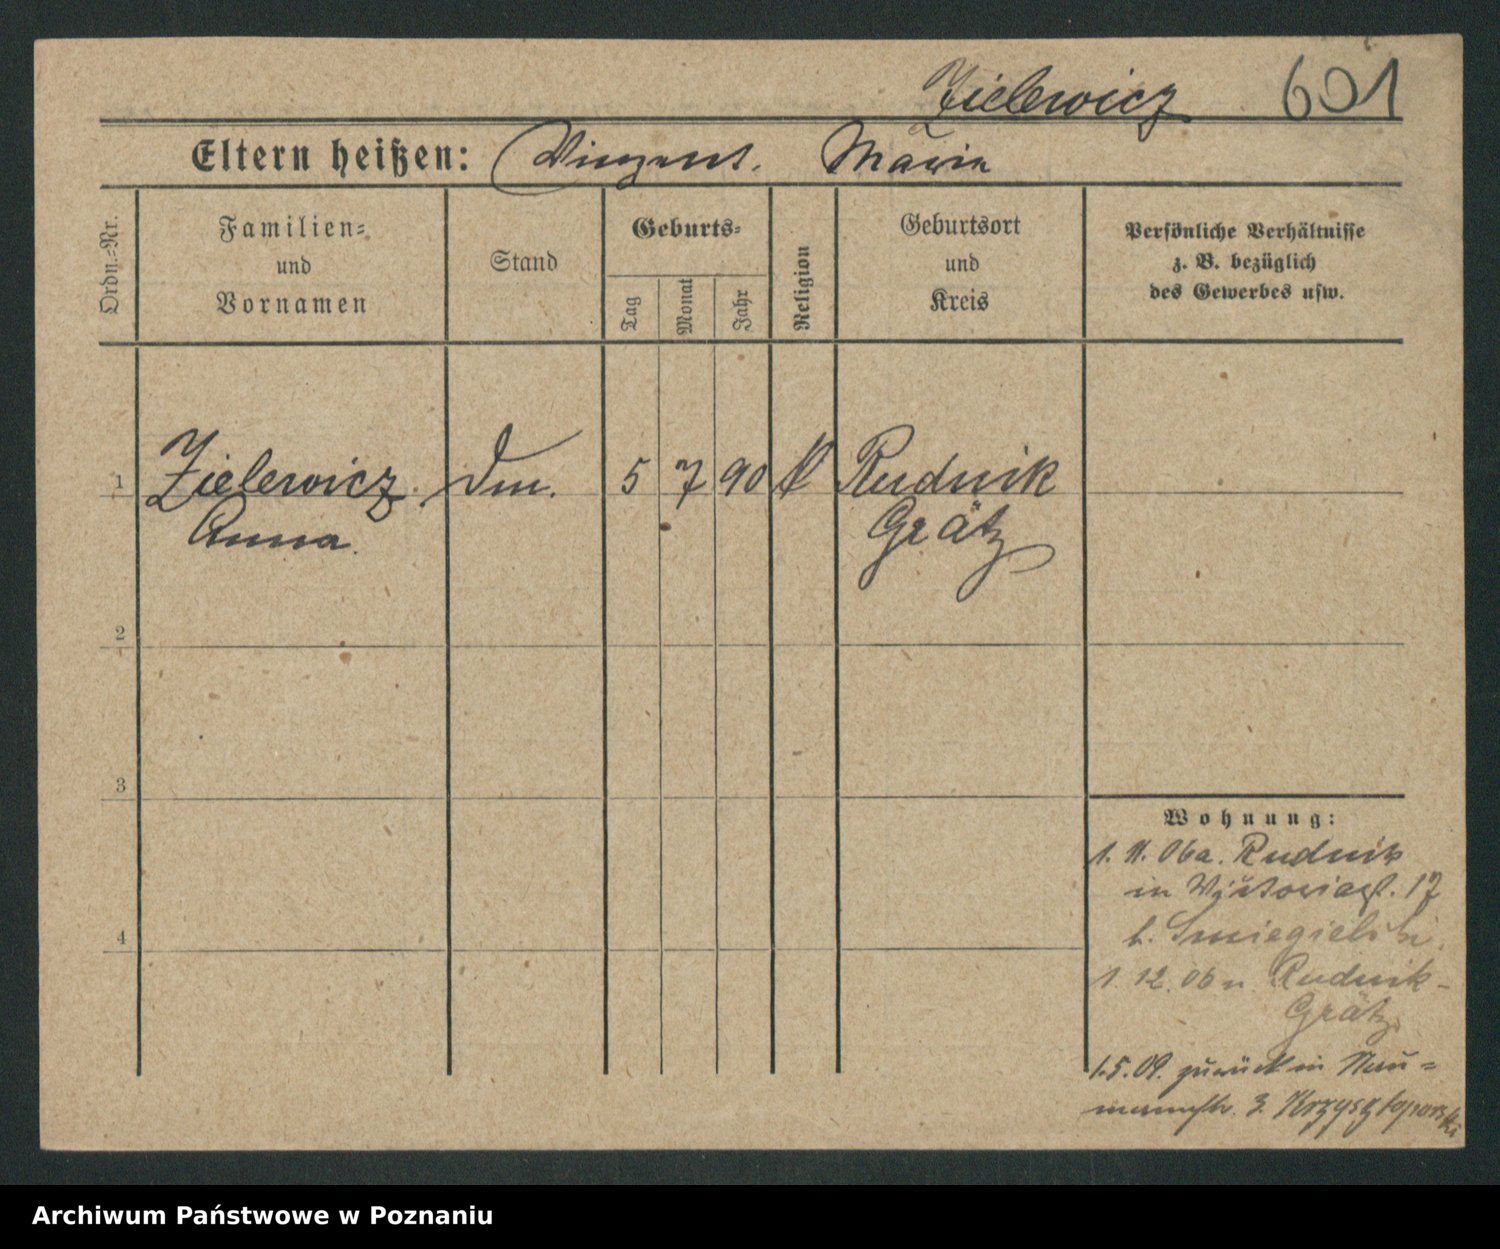 Zielewicz 601
Eltern heißen: Vinzent. Maria
Ordn.-Nr.
Familien-
und
Vornamen
Stand
Geburts-
Tag
Monat
Jahr
Religion
Geburtsort
und
Kreis
Persönliche Verhältnisse
z. B. bezüglich
des Gewerbes usw.
1 Zielewicz 5 7 90 k Rudnik
Anna. Grätz
2
3
4
Wohnung:
1. 11. 06 a. Rudnik
in Viktoriast. 17
b. Smiegielski.
1. 12. 06 n. Rudnik-
Grätz
1.5.09. zurück in Nau-
mannstr. 3. Krzysztoporski
Archiwum Państwowe w Poznaniu